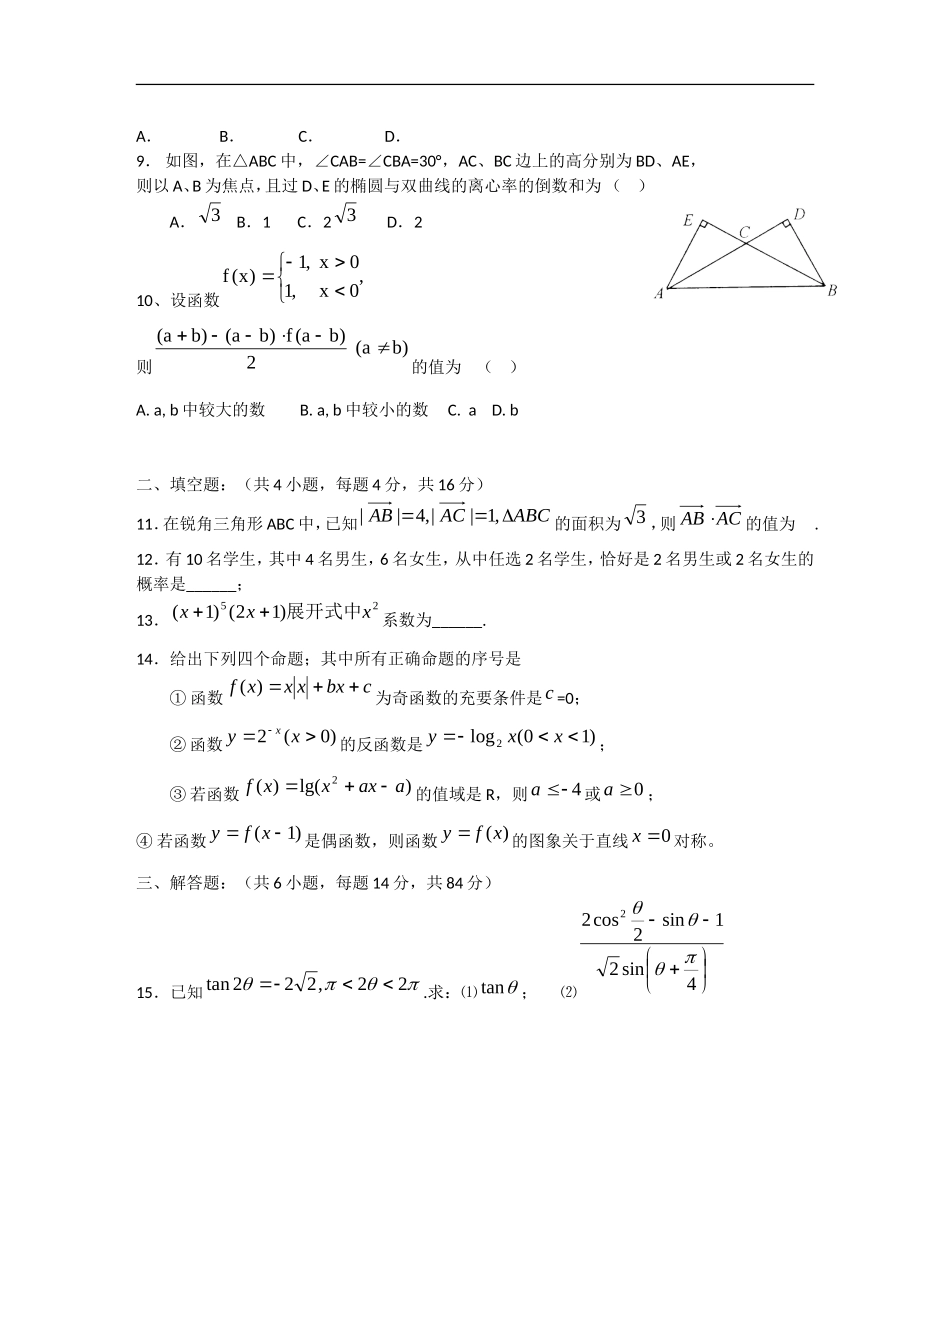 A． B． C． D．
9． 如图，在△ABC 中，∠CAB=∠CBA=30°，AC、BC 边上的高分别为 BD、AE，
则以 A、B 为焦点，且过 D、E 的椭圆与双曲线的离心率的倒数和为 （ ）
A．√3 B．1 C．2√3 D．2
E D C A B
10、设函数 f(x)={−1, x>0; 1, x<0,
则 ((a+b)−(a−b)·f(a−b))/2 (a≠b) 的值为 （ ）
A. a, b 中较大的数 B. a, b 中较小的数 C. a D. b
二、填空题：（共 4 小题，每题 4 分，共 16 分）
11．在锐角三角形 ABC 中，已知 |AB|=4,|AC|=1,ΔABC 的面积为 √3 ，则 AB·AC 的值为 ．
12．有 10 名学生，其中 4 名男生，6 名女生，从中任选 2 名学生，恰好是 2 名男生或 2 名女生的
概率是______；
13．(x+1)^5(2x+1)展开式中x^2 系数为______.
14．给出下列四个命题；其中所有正确命题的序号是
① 函数 f(x)=x|x|+bx+c 为奇函数的充要条件是 c =0；
② 函数 y=2^{−x}(x>0) 的反函数是 y=−log_2 x(0<x<1)；
③ 若函数 f(x)=lg(x^2+ax−a) 的值域是 R，则 a≤−4 或 a≥0；
④ 若函数 y=f(x−1) 是偶函数，则函数 y=f(x) 的图象关于直线 x=0 对称。
三、解答题：（共 6 小题，每题 14 分，共 84 分）
15．已知 tan2θ=−2√2,π<2θ<2π .求：⑴ tanθ； ⑵ (2cos^2(θ/2)−sinθ−1)/(√2sin(θ+π/4))